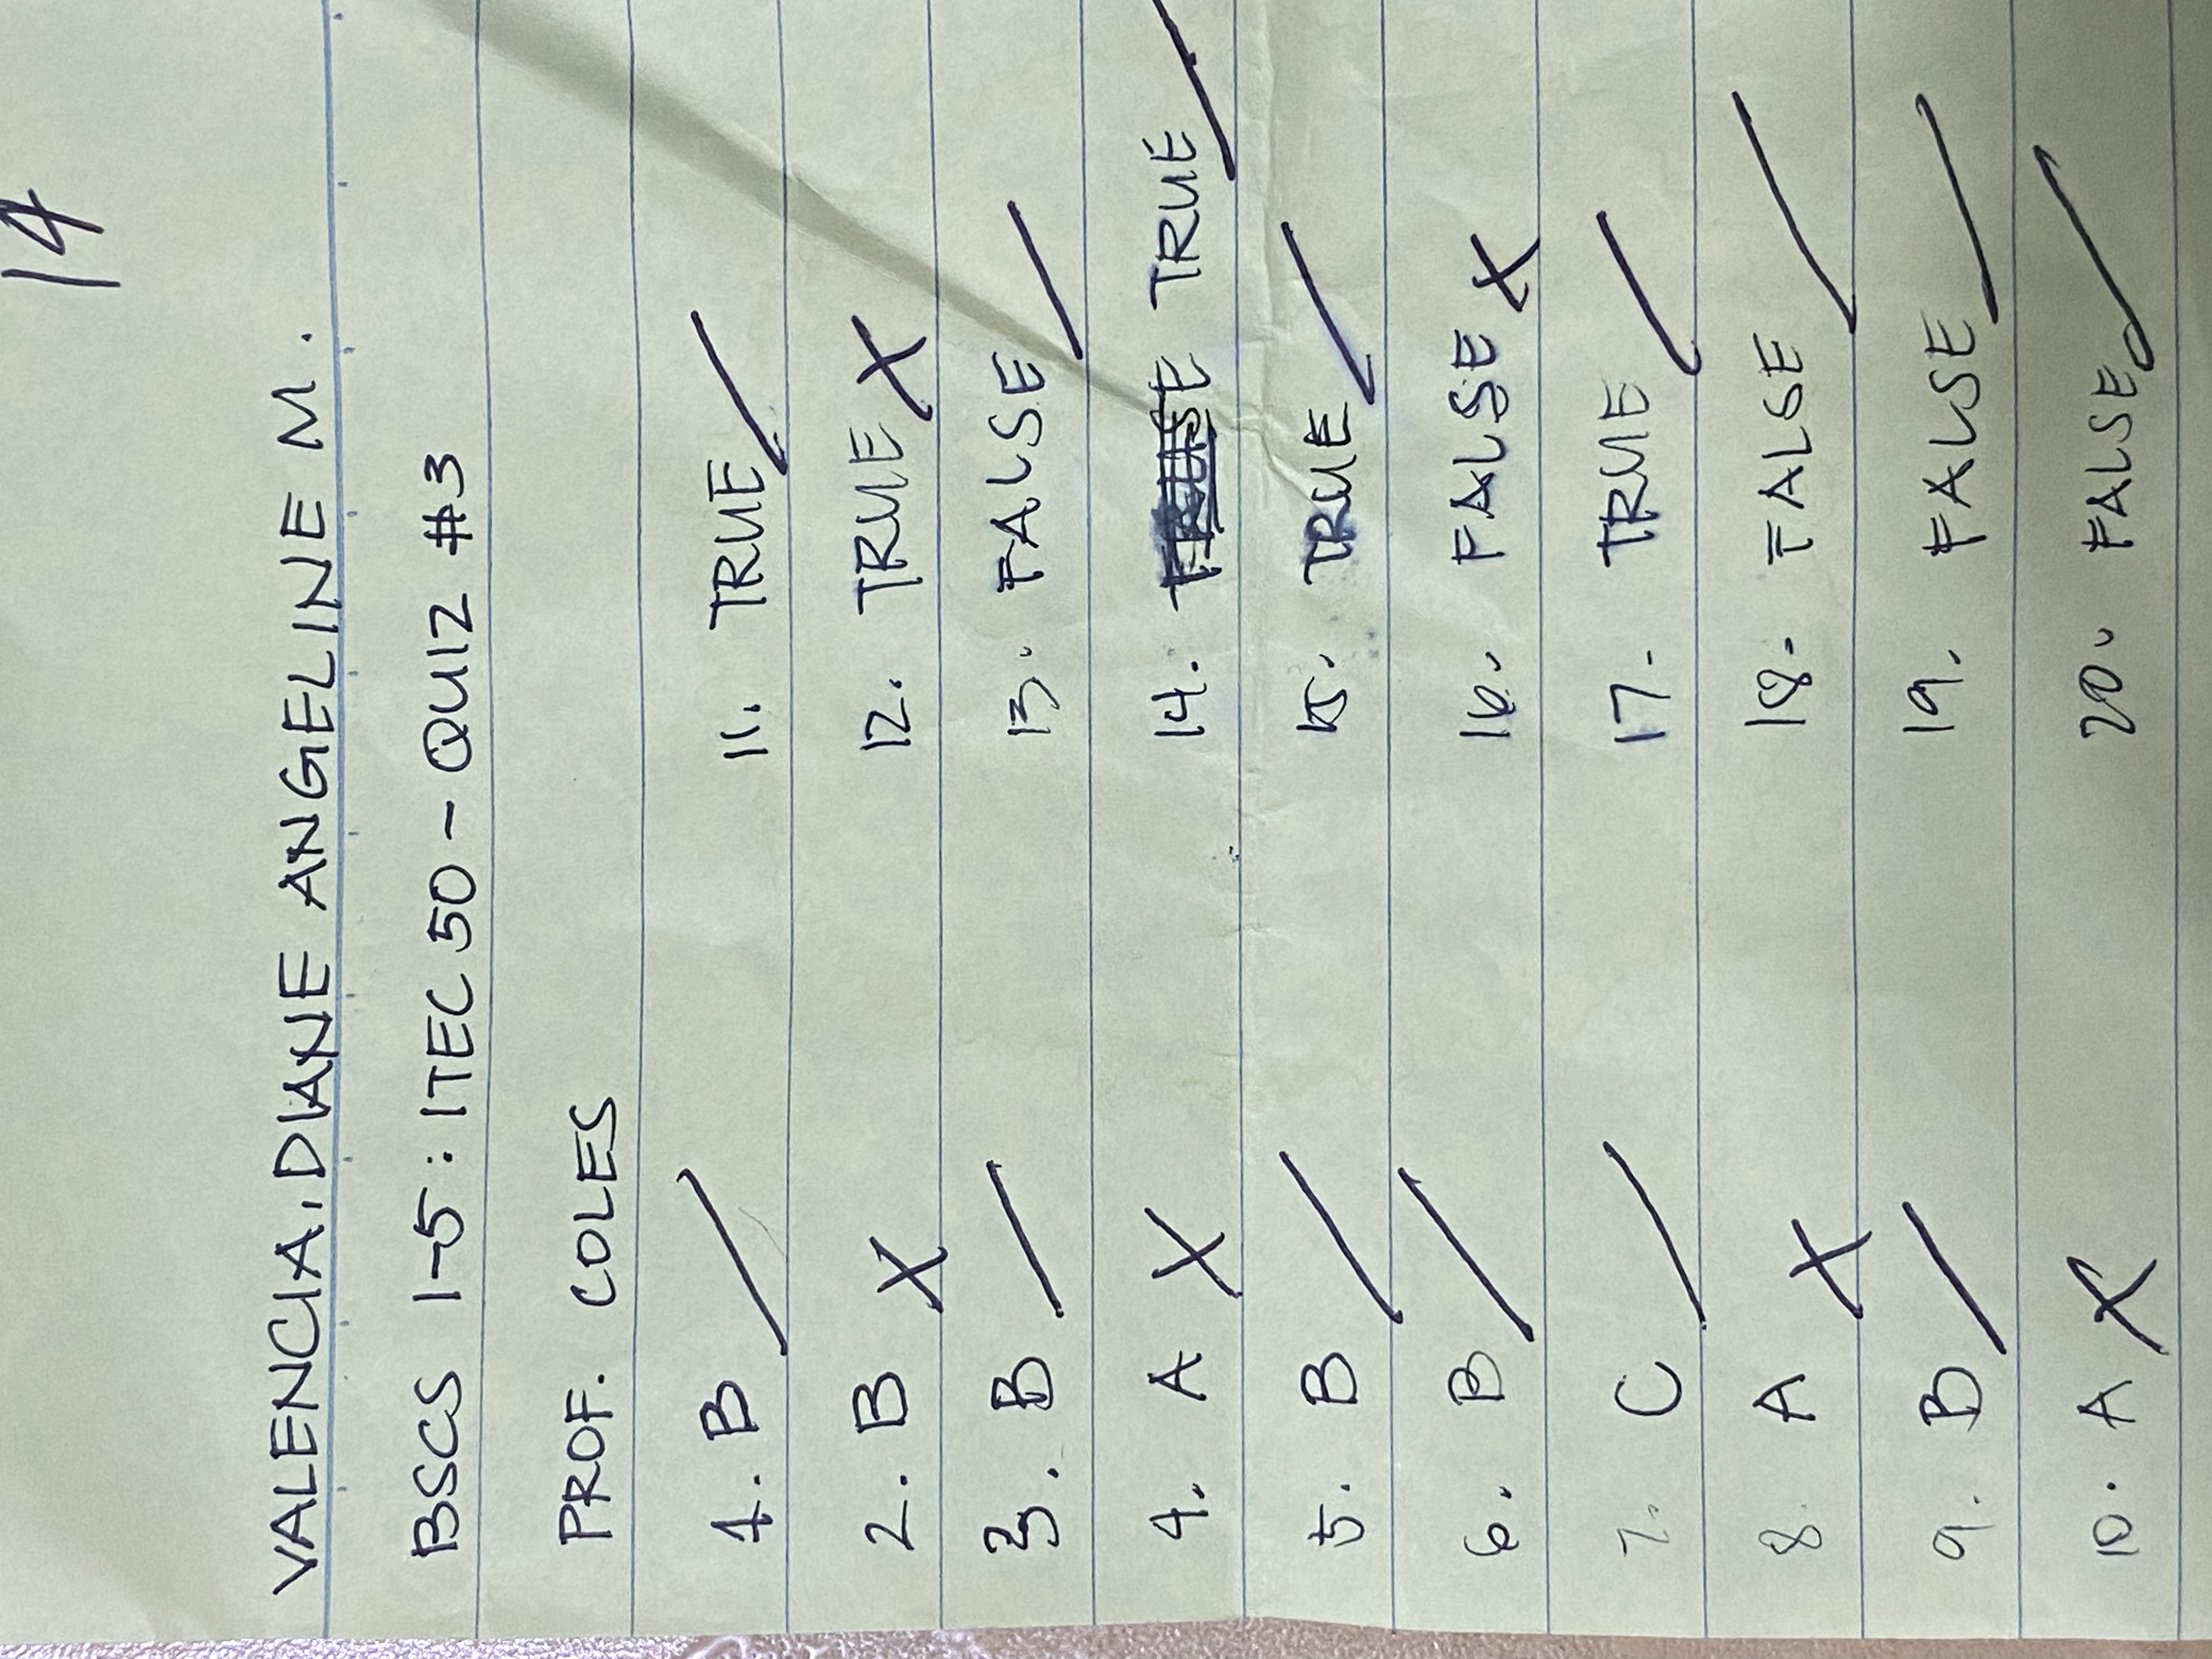 14
VALENCIA, DIANE ANGELINE M.
BSCS 1-5: ITEC 50 - QUIZ #3
PROF. COLES
1. B
2. B X
3. B
4. A X
5. B
6. B
7. C
8. A X
9. B
10. A X
11. TRUE
12. TRUE X
13. FALSE
14. TRUE
15. TRUE
16. FALSE X
17. TRUE
18. FALSE
19. FALSE
20. FALSE